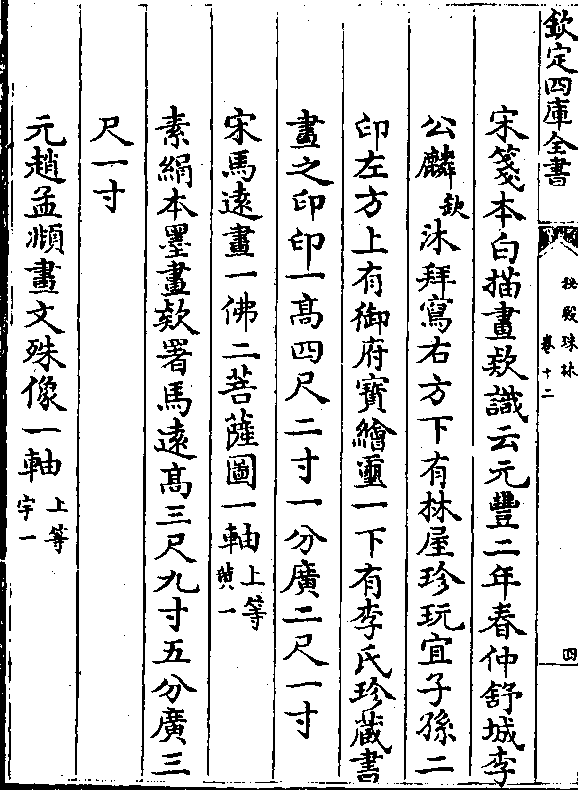 欽定四庫全書
秘殿珠林
卷十二
四
宋箋本白描畫欵識云元豐二年春仲舒城李
公麟敬沐拜寫右方下有林屋珍玩宜子孫二
印左方上有御府寶繪璽一下有李氏珍藏書
畫之印印一高四尺二寸一分廣二尺一寸
宋馬遠畫一佛二菩薩圖一軸上等
黄一
素絹本墨畫欵署馬遠高三尺九寸五分廣三
尺一寸
元趙孟頫畫文殊像一軸上等
宇一